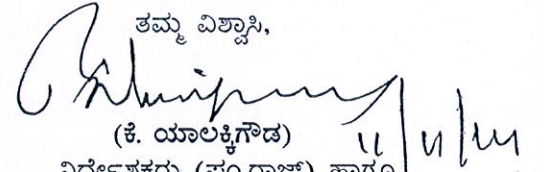 ತಮ್ಮ ವಿಶ್ವಾಸಿ,
(ಕೆ. ಯಾಲಕ್ಕಿಗೌಡ)
ನಿರ್ದೇಶಕರು (ಪಂ.ರಾಜ್) ಹಾಗೂ